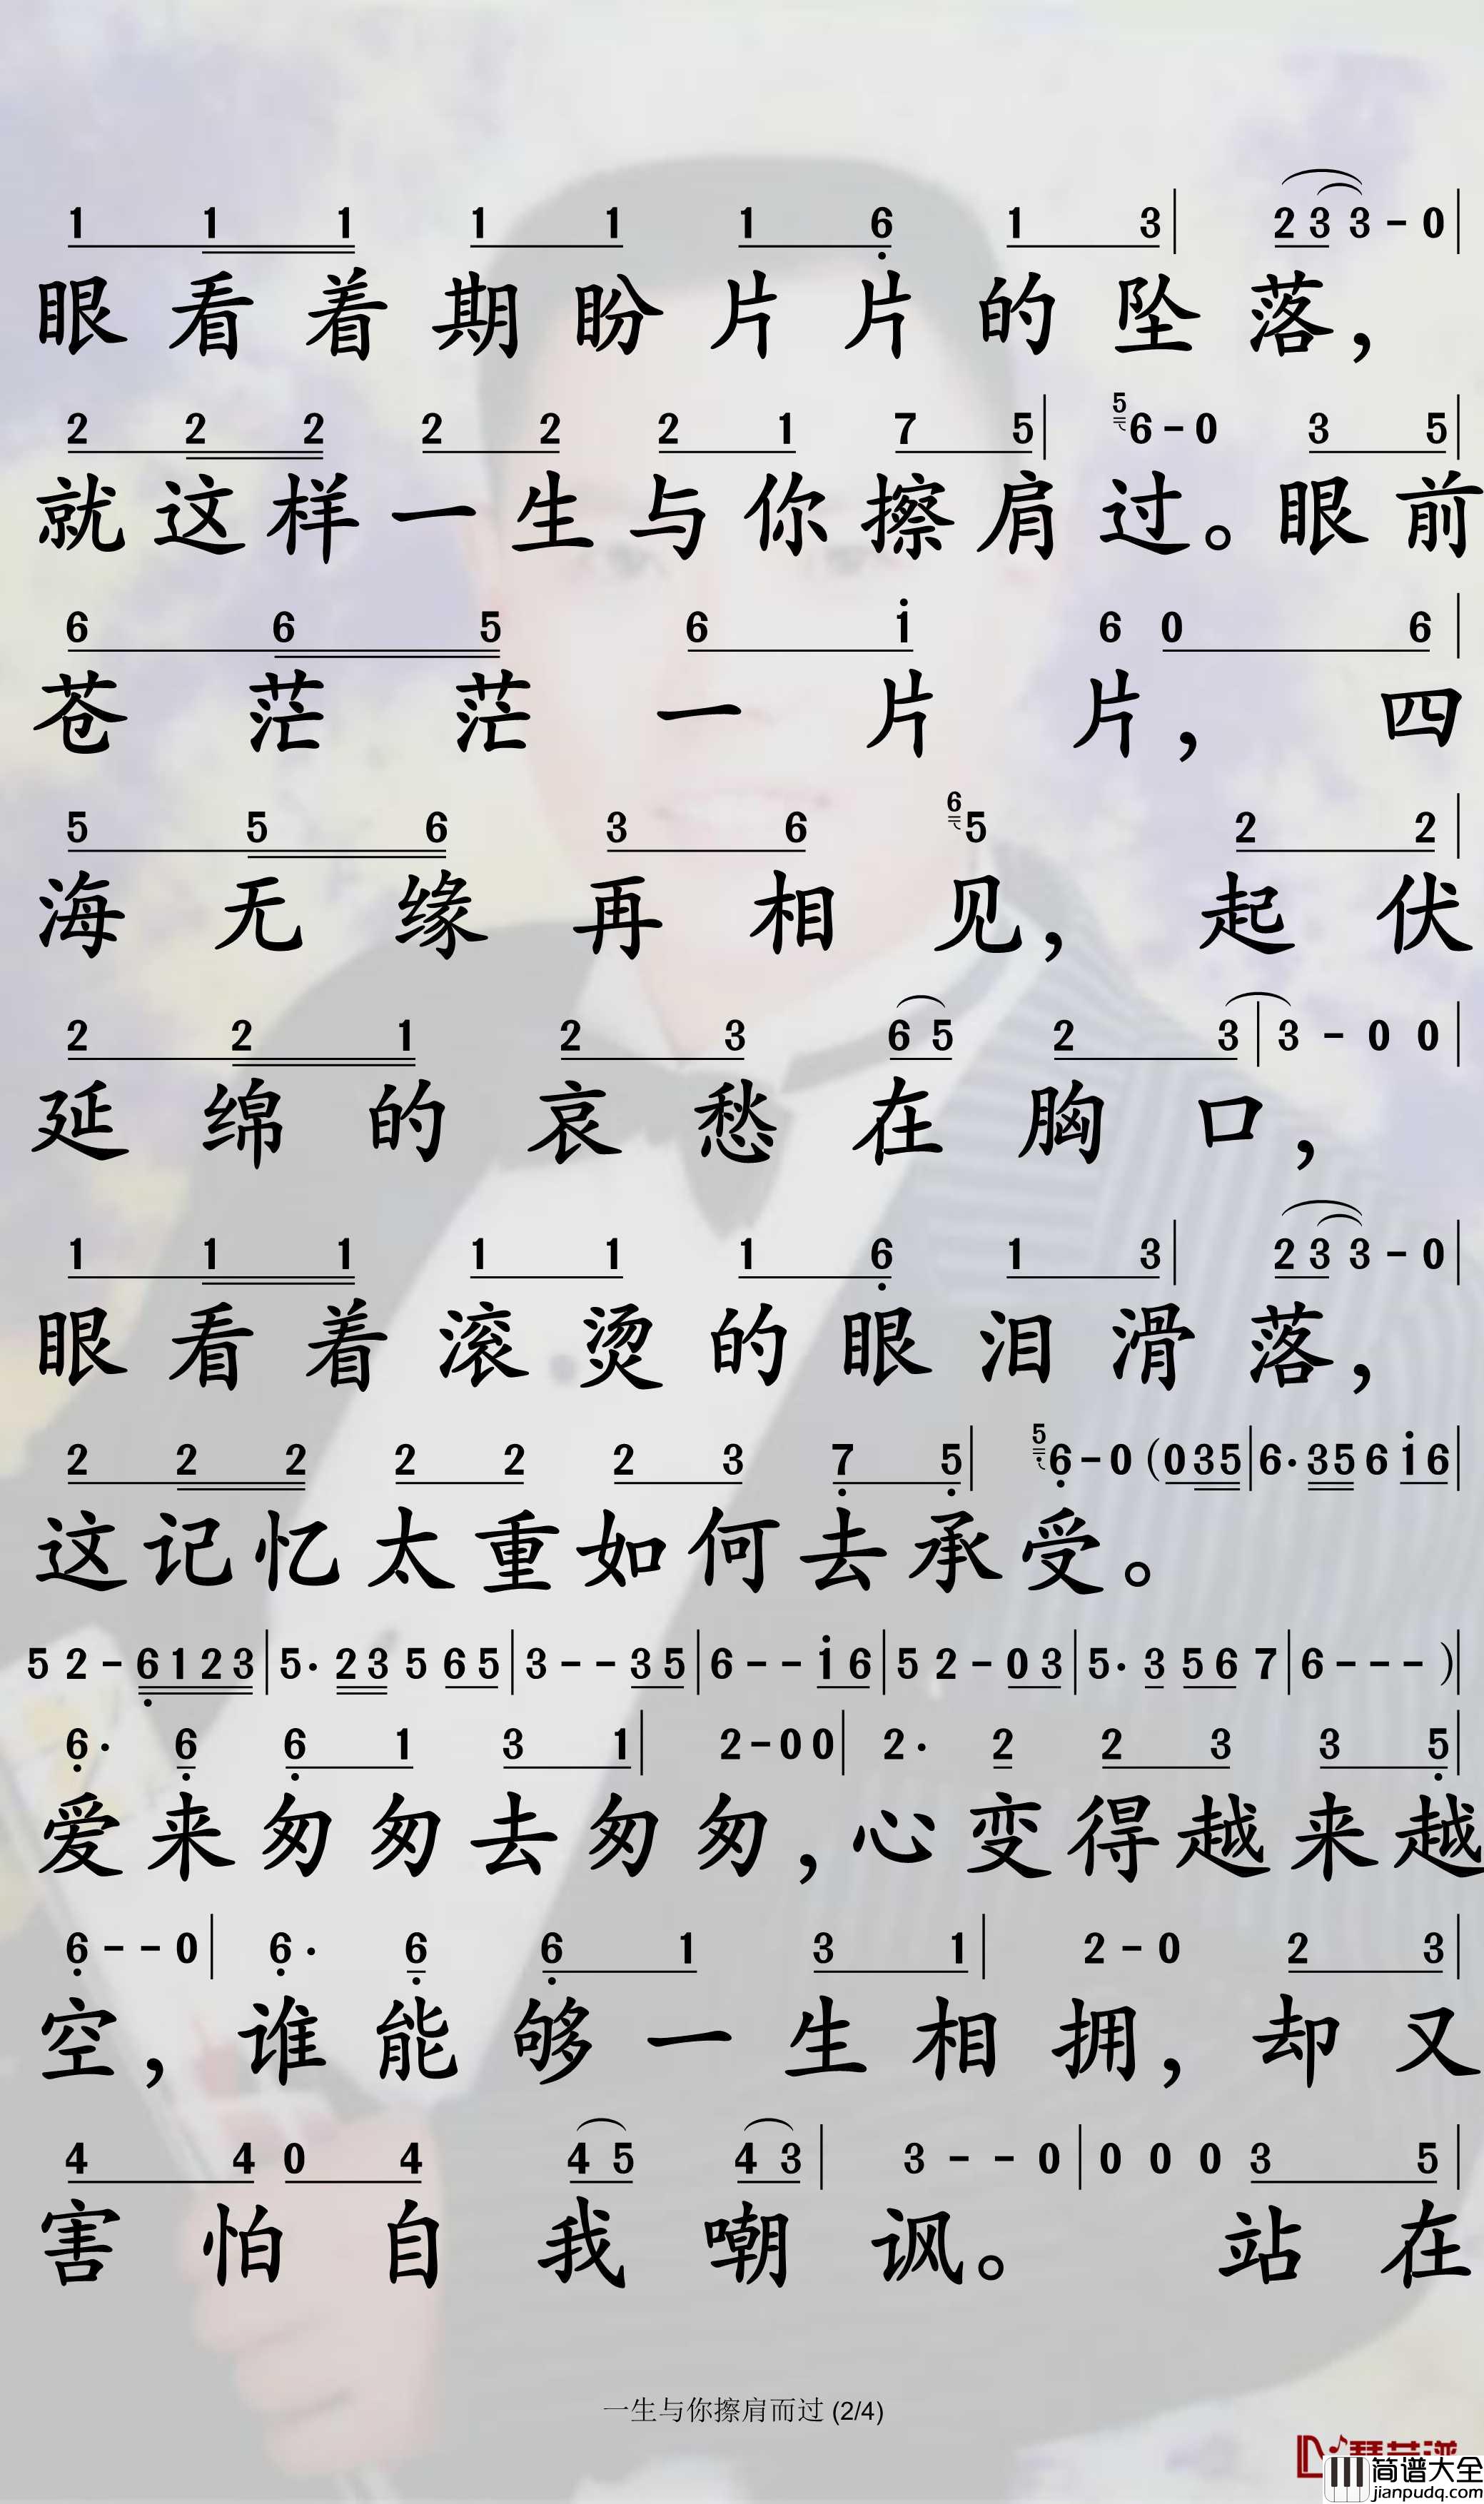 1 1 1 1 1 1 6 1 3 | 2 3 3 - 0 |
眼看着期盼片片的坠落，
2 2 2 2 2 2 1 7 5 | 5 6 - 0 3 5 |
就这样一生与你擦肩过。眼前
6 6 5 6 i 6 0 6 |
苍茫茫一片片，四
5 5 6 3 6 6 5 2 2 |
海无缘再相见，起伏
2 2 1 2 3 6 5 2 3 | 3 - 0 0 |
延绵的哀愁在胸口，
1 1 1 1 1 1 6 1 3 | 2 3 3 - 0 |
眼看着滚烫的眼泪滑落，
2 2 2 2 2 2 3 7 5 | 5 6 - 0 (0 3 5 | 6· 3 5 6 i 6 |
这记忆太重如何去承受。
5 2 - 6 1 2 3 | 5· 2 3 5 6 5 | 3 - - 3 5 | 6 - - i 6 | 5 2 - 0 3 | 5· 3 5 6 7 | 6 - - - ) |
6· 6 6 1 3 1 | 2 - 0 0 | 2· 2 2 3 3 5 |
爱来匆匆去匆匆，心变得越来越
6 - - 0 | 6· 6 6 1 3 1 | 2 - 0 2 3 |
空，谁能够一生相拥，却又
4 4 0 4 4 5 4 3 | 3 - - 0 | 0 0 0 3 5 |
害怕自我嘲讽。站在
一生与你擦肩而过 (2/4)
简谱大全
jianpudq.com